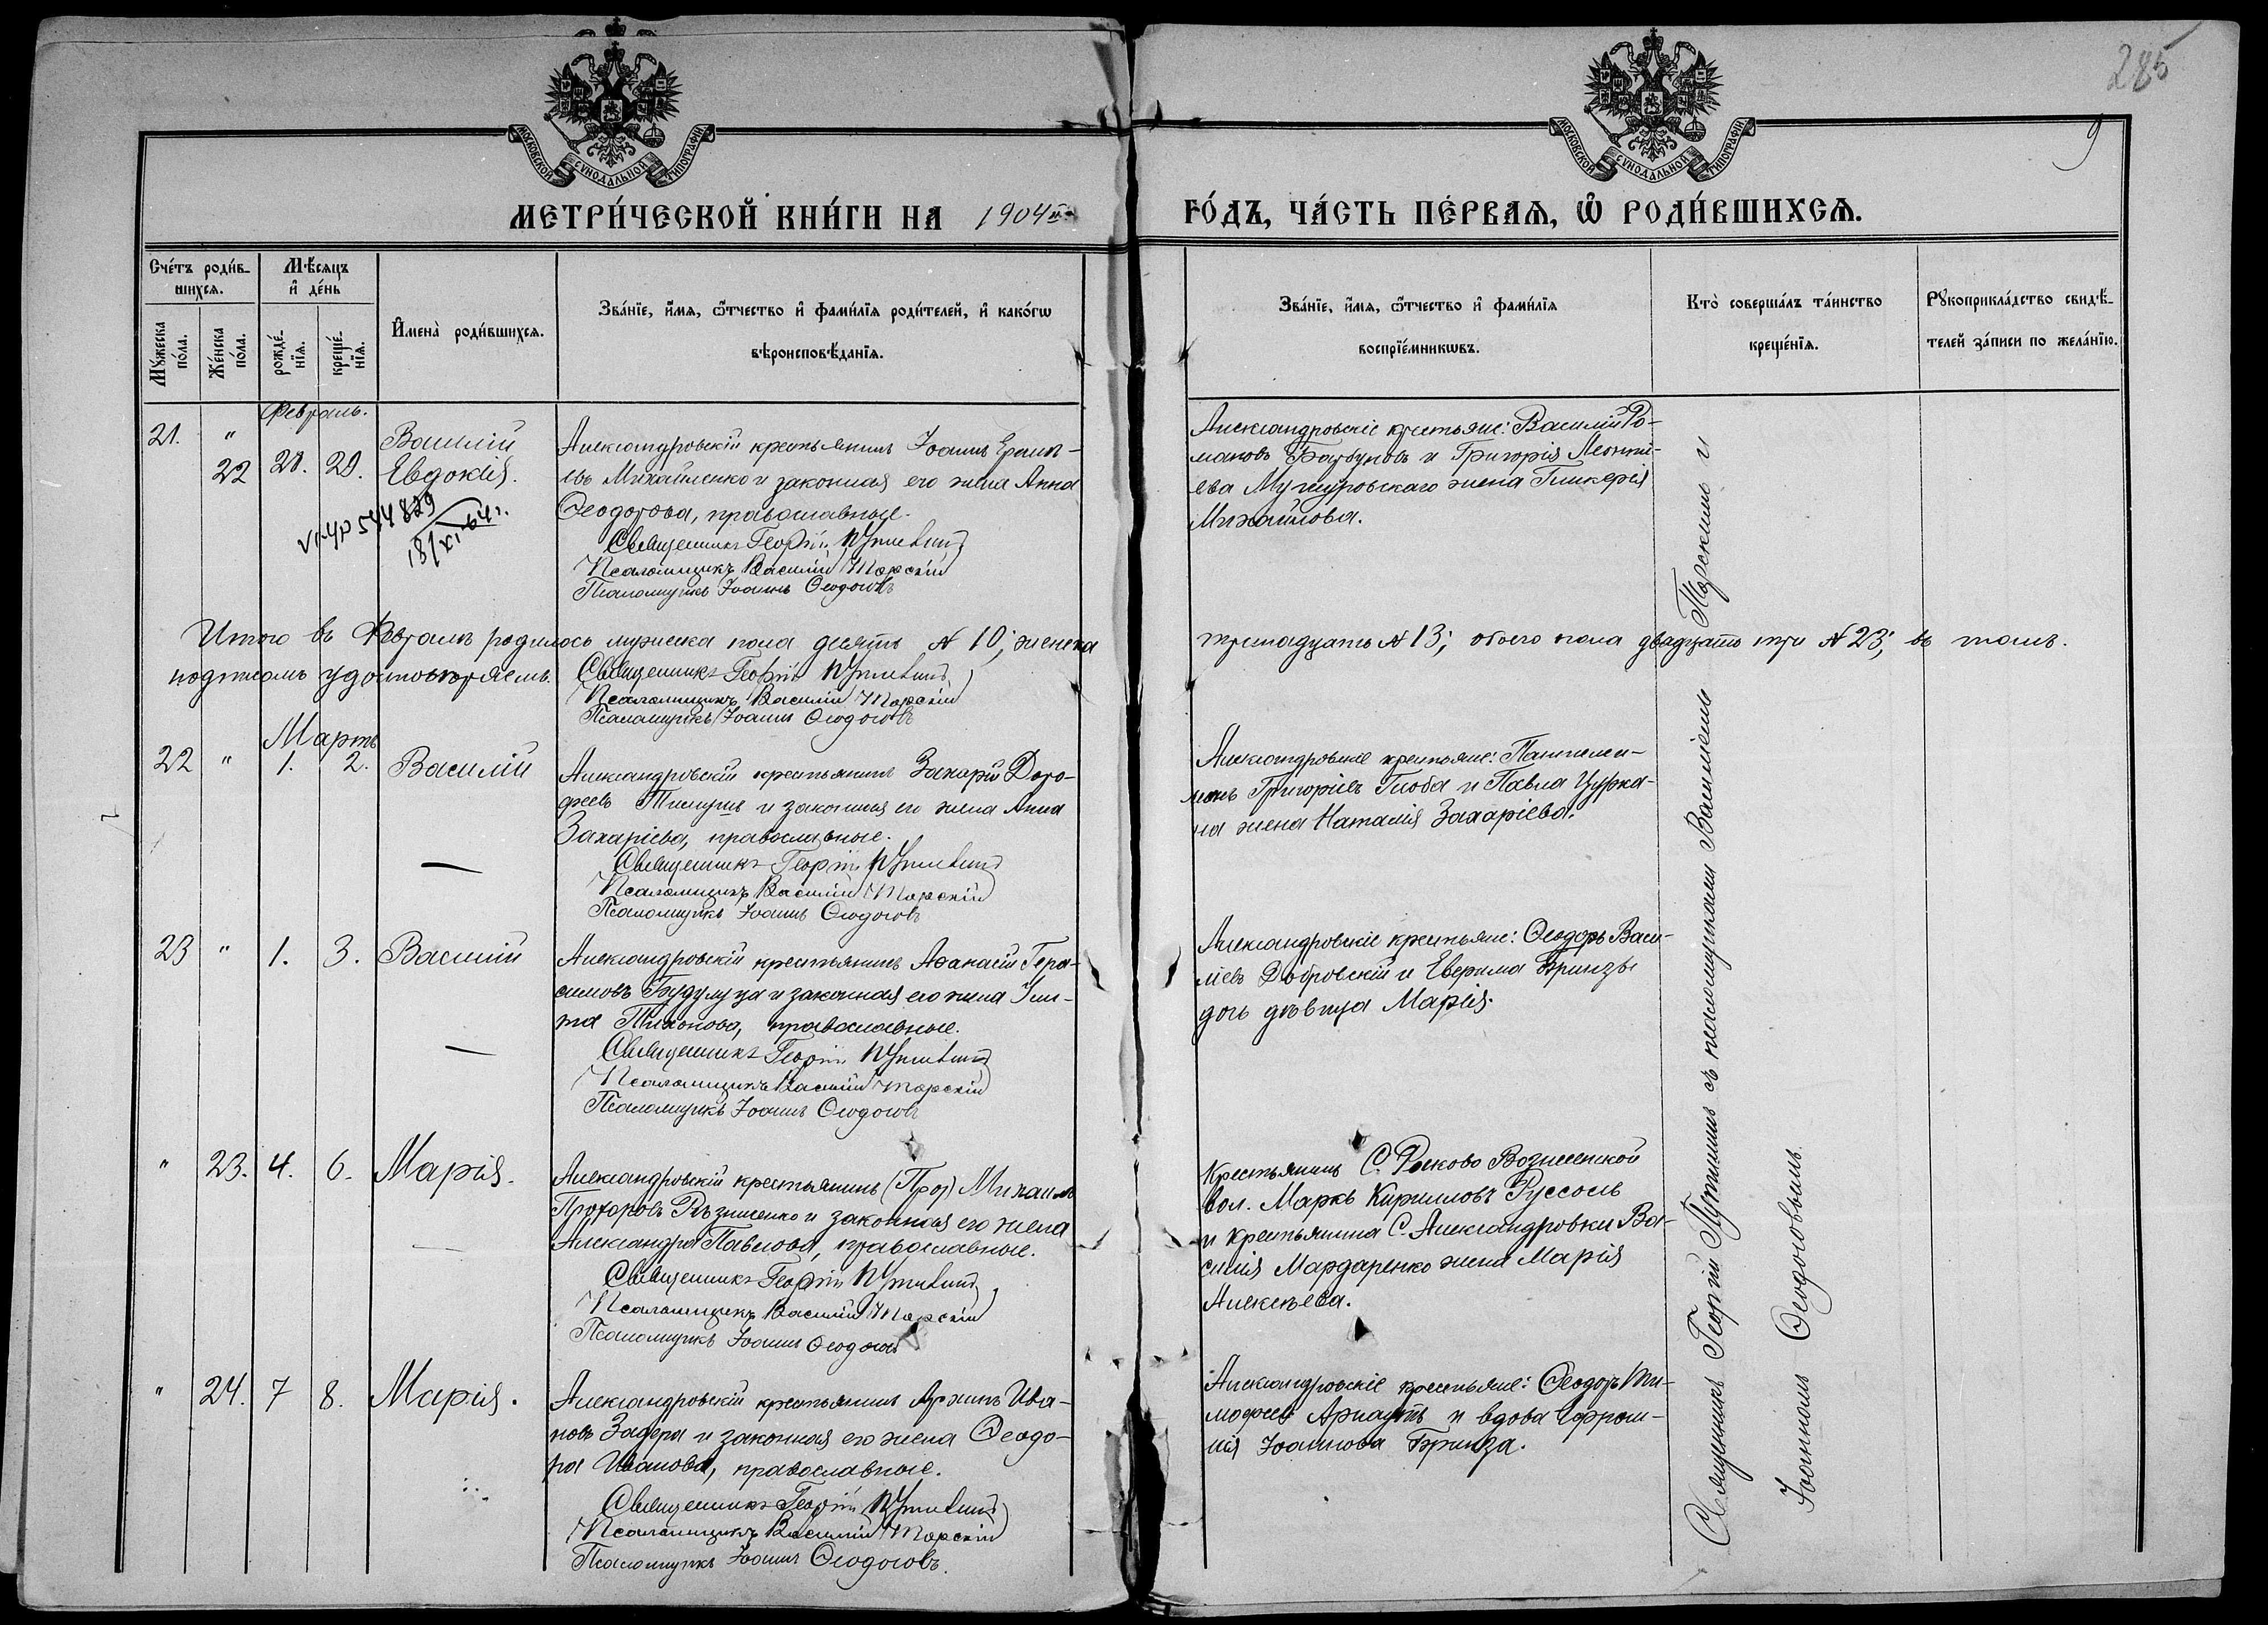 285
9
МОСКОВСКОЙ СѴНОДАЛЬНОЙ ТИПОГРАФІИ
МОСКОВСКОЙ СѴНОДАЛЬНОЙ ТИПОГРАФІИ
МЕТРИ́ЧЕСКОЙ КНИ́ГИ НА 1904й
ГО́ДЪ, ЧА́СТЬ ПЕ́РВАЯ, Ѽ РОДИ́ВШИХСЯ.
Сче́тъ роди́в-
шихся.
Мѣ́сяцъ
и҆ де́нь
Мꙋ́жеска по́ла.
Же́нска по́ла.
рожде́-
нїя.
креще́-
нїя.
И҆мена̀ роди́вшихся.
Зва́нїе, и҆́мя, ѻ҆́тчество и҆ фами́лїя роди́телей, и҆ како́гѡ
вѣроисповѣ́данїя.
Зва́нїе, и҆́мя, ѻ҆́тчество и҆ фами́лїя
воспрїе́мникѡвъ.
Кто̀ соверша́лъ та́инство
креще́нїя.
Рꙋкоприкла́дство свидѣ́-
телей за́писи по жела́нїю.
Февраль.
21. " Василій
22 28. 29. Евдокія.
Александровскій крестьянинъ Іоаннъ
Михайленко и законная его жена Анна
Ѳеодотова, православные.
Священникъ Георгій Путилинъ
Псаломщикъ Василій Торскій
Псаломщикъ Іоаннъ Ѳеодосовъ
Александровскіе крестьяне: Василій Ро-
мановъ Барбуновъ и Григорія Леонті-
ева жена Гликерія
Михайлова.
VI-УР 544829
18/XI-64г.
Итого въ Февралѣ родилось мужеска пола десять № 10; женска
тринадцать № 13; обоего пола двадцать три № 23; въ томъ.
подписомъ удостовѣряемъ.
Священникъ Георгій Путилинъ
Псаломщикъ Василій Торскій
Псаломщикъ Іоаннъ Ѳеодосовъ
Мартъ
22 " 1. 2. Василій
Александровскій крестьянинъ Захарій Доро-
феевъ и законная его жена Анна
Захаріева, православные.
Священникъ Георгій Путилинъ
Псаломщикъ Василій Торскій
Псаломщикъ Іоаннъ Ѳеодосовъ
Александровскіе крестьяне: Пантелеи-
монъ Григоріевъ Глоба и Павла Цурка-
на жена Наталія Захаріева.
23 " 1. 3. Василій
Александровскій крестьянинъ Аѳанасій Гера-
симовъ Будулуца и законная его жена
Тихонова, православные.
Священникъ Георгій Путилинъ
Псаломщикъ Василій Торскій
Псаломщикъ Іоаннъ Ѳеодосовъ
Александровскіе крестьяне: Ѳеодоръ Васи-
ліевъ Добровскій и Евфима Бринзы
дочь дѣвица Марія.
" 23. 4. 6. Марія.
Александровскій крестьянинъ (Прох) Михаилъ
Прохоровъ Рѣзниченко и законная его жена
Александра Павлова, православные.
Священникъ Георгій Путилинъ
Псаломщикъ Василій Торскій
Псаломщикъ Іоаннъ Ѳеодосовъ
Крестьянинъ С. Ясково Вознесенской
вол. Маркъ Кирилловъ Руссолъ
и крестьянина С. Александровки Ва-
силія Мардаренко жена Марія
Алексѣева.
" 24. 7 8. Марія.
Александровскій крестьянинъ Архипъ Ива-
новъ Задера и законная его жена Ѳеодо-
ра Иванова, православные.
Священникъ Георгій Путилинъ
Псаломщикъ Василій Торскій
Псаломщикъ Іоаннъ Ѳеодосовъ.
Александровскіе крестьяне: Ѳеодоръ Ти-
моѳеевъ Арнаутъ и вдова Ефроси-
нія Іоаннова Бринза.
Священникъ Георгій Путилинъ съ псаломщиками Василіемъ Торскимъ и
Іоанномъ Ѳеодосовымъ.